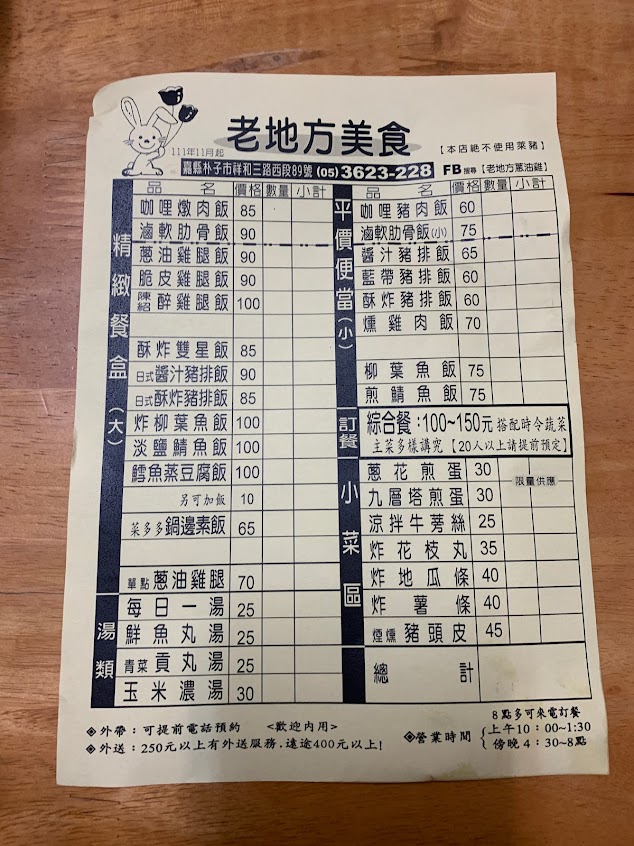 老地方美食
111年11月起
【本店絕不使用萊豬】
嘉縣朴子市祥和三路西段89號 (05)3623-228 FB搜尋【老地方蔥油雞】
品名 價格 數量 小計
精緻餐盒(大)
咖哩燉肉飯 85
滷軟肋骨飯 90
蔥油雞腿飯 90
脆皮雞腿飯 90
陳紹醉雞腿飯 100
酥炸雙星飯 85
日式醬汁豬排飯 90
日式酥炸豬排飯 85
炸柳葉魚飯 100
淡鹽鯖魚飯 100
鱈魚蒸豆腐飯 100
另可加飯 10
菜多多鍋邊素飯 65
單點蔥油雞腿 70
湯類
每日一湯 25
鮮魚丸湯 25
青菜貢丸湯 25
玉米濃湯 30
品名 價格 數量 小計
平價便當(小)
咖哩豬肉飯 60
滷軟肋骨飯(小) 75
醬汁豬排飯 65
藍帶豬排飯 60
酥炸豬排飯 60
燻雞肉飯 70
柳葉魚飯 75
煎鯖魚飯 75
訂餐
綜合餐:100~150元 搭配時令蔬菜
主菜多樣講究【20人以上請提前預定】
小菜區
蔥花煎蛋 30
限量供應
九層塔煎蛋 30
涼拌牛蒡絲 25
炸花枝丸 35
炸地瓜條 40
炸薯條 40
煙燻豬頭皮 45
總計
◈外帶:可提前電話預約 <歡迎內用>
◈外送:250元以上有外送服務,遠途400元以上!
8點多可來電訂餐
◈營業時間 上午10:00~1:30
傍晚4:30~8點